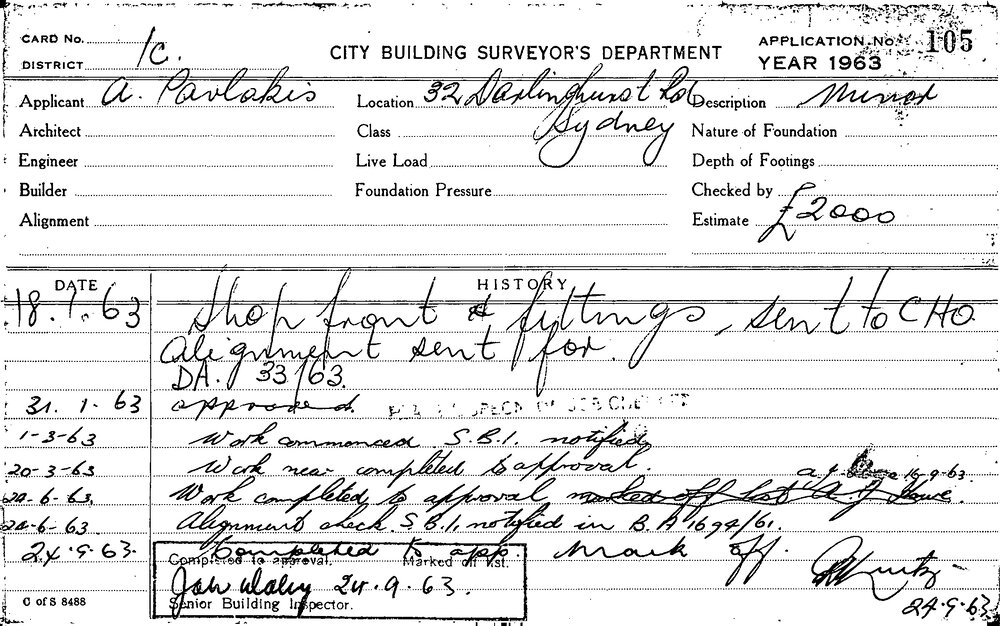 CARD No. 1c. CITY BUILDING SURVEYOR'S DEPARTMENT APPLICATION No. 105
DISTRICT YEAR 1963
Applicant A. Pavlakis Location 32 Darlinghurst Rd Description Minor
Architect Class Sydney Nature of Foundation
Engineer Live Load Depth of Footings
Builder Foundation Pressure Checked by
Alignment Estimate £2000
DATE HISTORY
18.1.63 Shop front & fittings, sent to CHO.
Alignment sent for.
DA. 33/63.
31.1.63 approved.
1-3-63 Work commenced S.B.I. notified
20-3-63 Work near completed to approval.
24-6-63. Work completed to approval marked off list A J Lowe. 16.9.63.
24-6-63. Alignment check. S.B.I. notified in B.A 1694/61.
24.9.63. Completed to app. Mark off.
Completed to approval. Marked off list.
24.9.63.
Senior Building Inspector.
C of S 8488 24.9.63